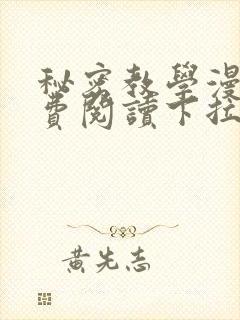 秘密教學漫
費閱讀下拉
黃先志